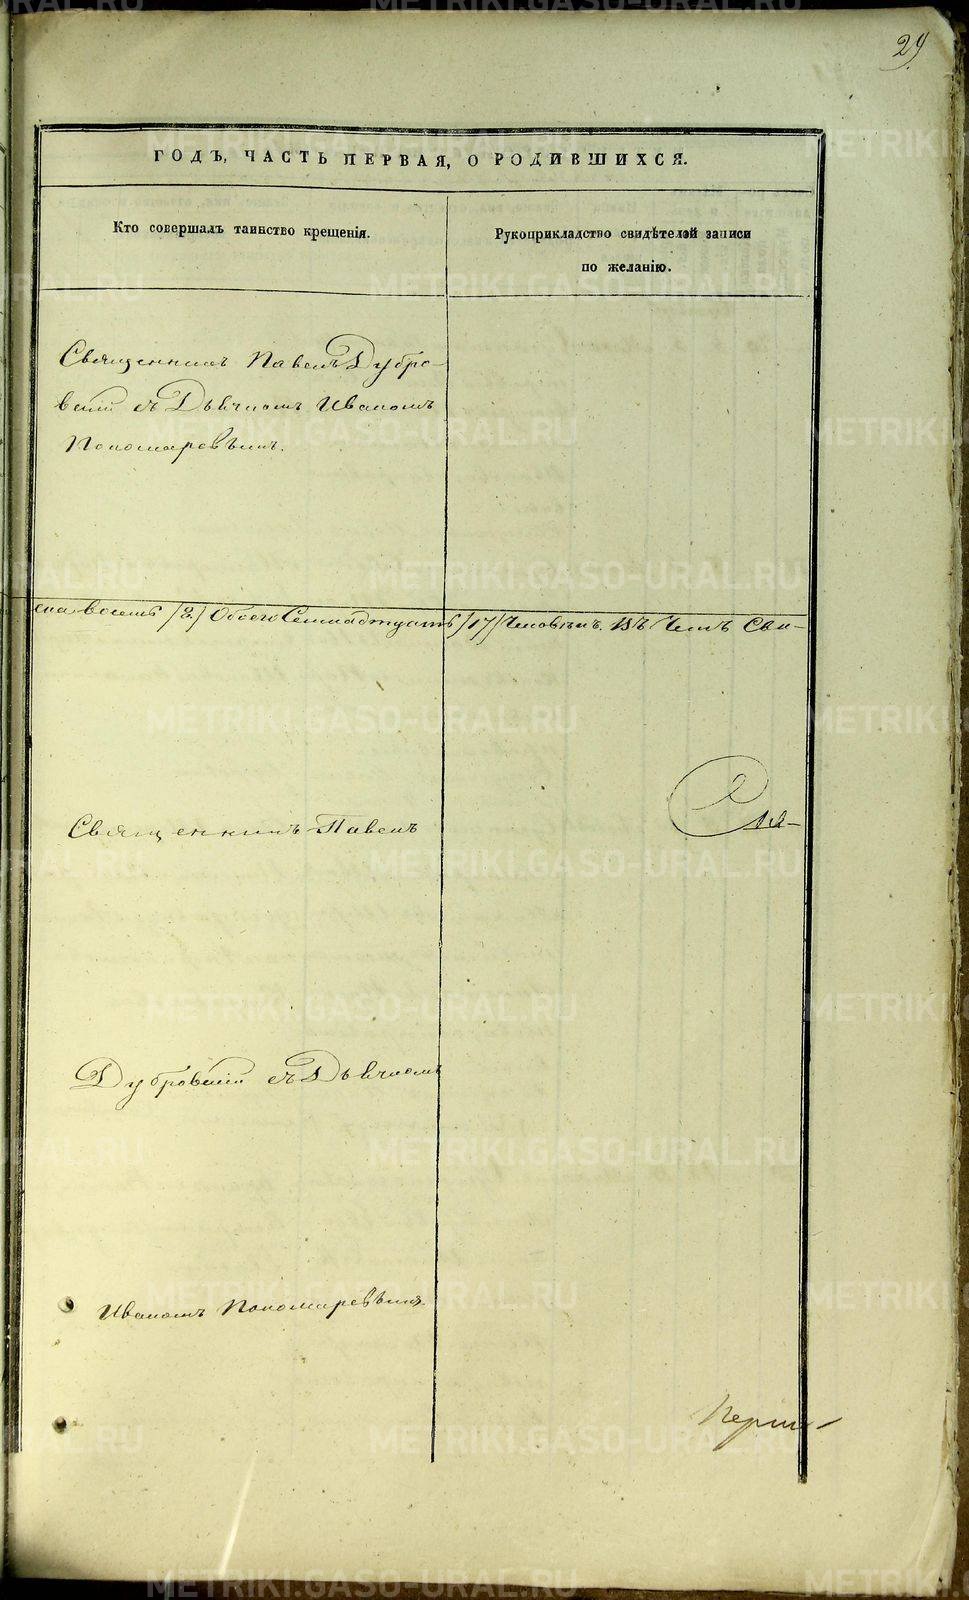 29
ГОДЪ, ЧАСТЬ ПЕРВАЯ, О РОДИВШИХСЯ.
Кто совершалъ таинство крещенія.
Рукоприкладство свидѣтелей записи
по желанію.
Священникъ Павелъ Дубро-
вскій съ Дьячкомъ Иваномъ
Пономаревымъ.
ска восемь /8./ Обоего Семнадцать /17/ Человѣкъ. Въ Чемъ Сви-
Священникъ Павелъ
Дубровскій съ Дьячкомъ
Иваномъ Пономаревымъ
METRIKI.GASO-URAL.RU